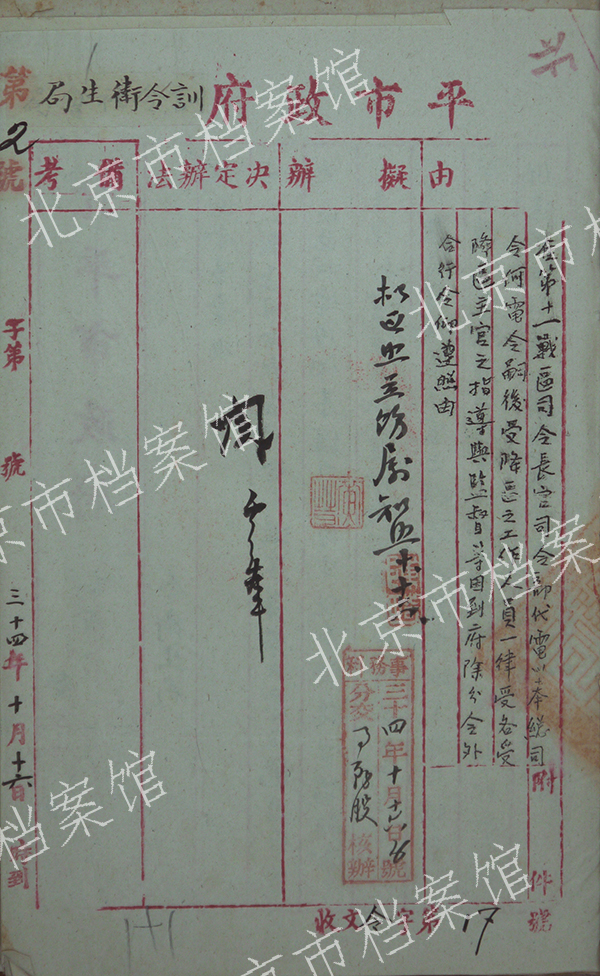 平市政府訓令衛生局
由
擬辦
決定辦法
備考
准第十一戰區司令長官司令部代電以奉總司
令何電令嗣後受降區之工作人員一律受各受
降區主官之指導與監督等因到府除分令外
合行令仰遵照由
附件
號
三十四年十月十六日
分交
股
核辦
號
收文令字第17
第2號
字第
號
三十四年十月十六日
到
北京市档案馆
北京市档案馆
北京市档案馆
北京市档案馆
北京市档案馆
北京市档案馆